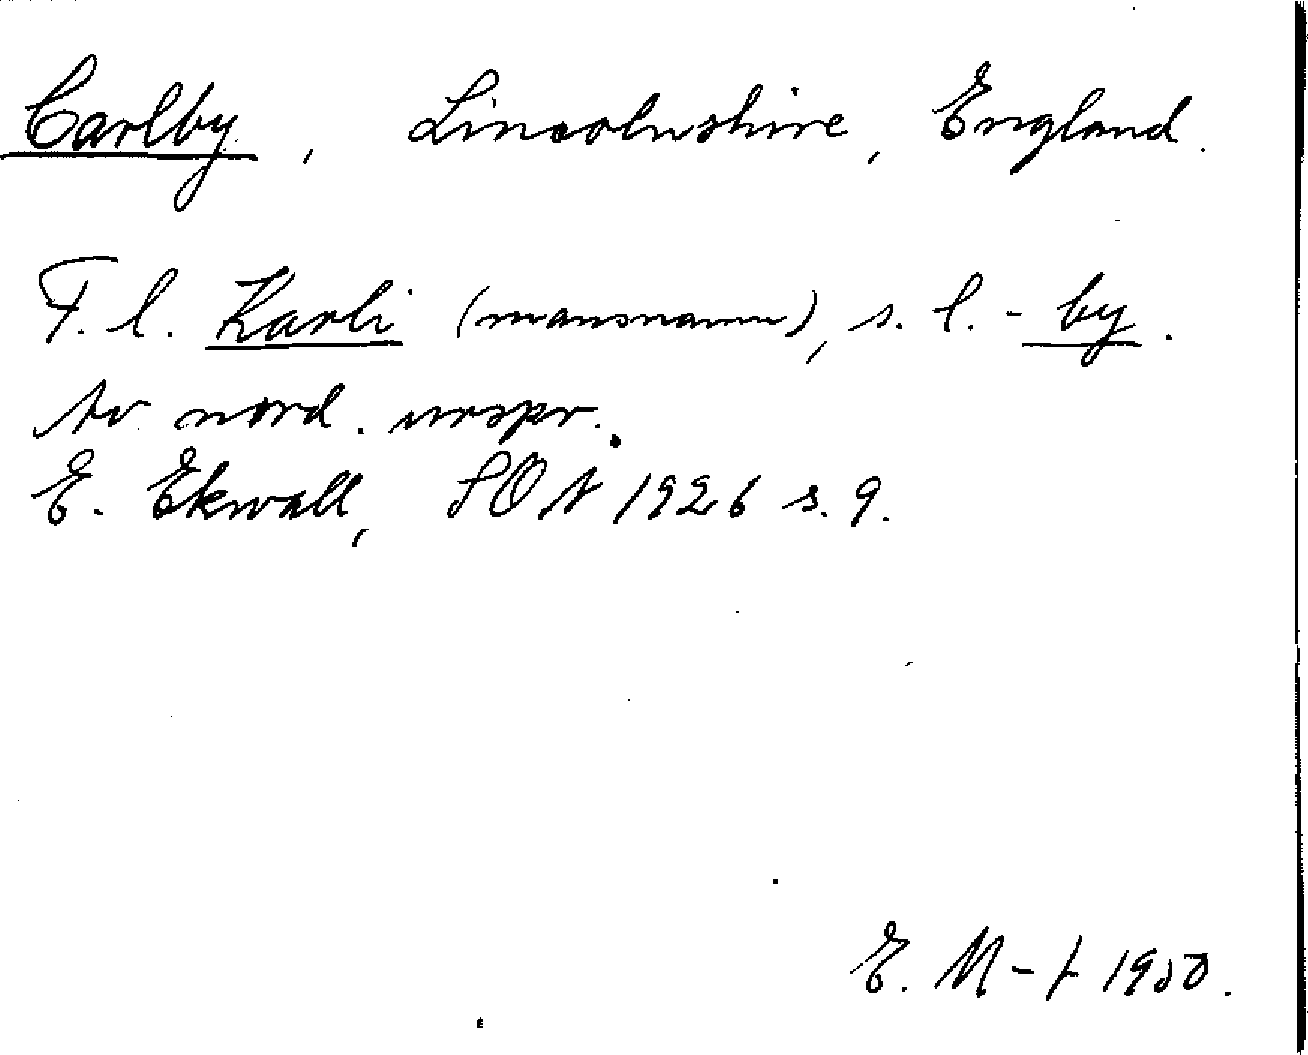 Carlby, Lincolnshire, England.
F. l. Karli (mansnamn), s. l. -by.
Av nord. urspr.
E. Ekwall, SOÅ 1926 s. 9.
E. M-t 1950.